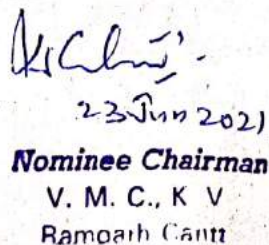 23 Jun 2021
Nominee Chairman
V. M. C., K V
Ramgarh Cantt